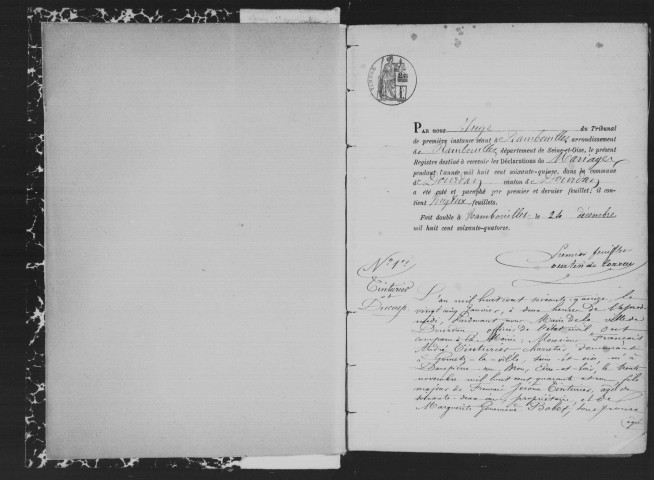 PAR NOUS Juge du Tribunal
de première instance séant à Rambouillet, arrondissement
de Rambouillet, département de Seine-et-Oise, le présent
Registre destiné à recevoir les Déclarations de Mariages
pendant l'année mil huit cent soixante-quinze, dans la commune
de Dourdan canton de Dourdan
a été coté et paraphé par premier et dernier feuillet; il con-
tient feuillets.
Fait double à Rambouillet le 24 décembre
mil huit cent soixante-quatorze.
Premier feuillet
N° 1er
Tinturier
et
L'an mil huit cent soixante-quinze, le
vingt cinq janvier, à deux heures de l'après
midi, devant nous Maire de la ville de
Dourdan officier de l'état civil ont
comparu à la Mairie, Monsieur François
André Tinturier charretier, demeurant
à Gometz-la-ville, Seine-et-Oise, né à
Dampierre-en- Eure-et-Loir, le trente
novembre mil huit cent quarante et un fils
majeur de François Jérôme Tinturier, âgé de
soixante-deux ans propriétaire, et de
Marguerite Geneviève